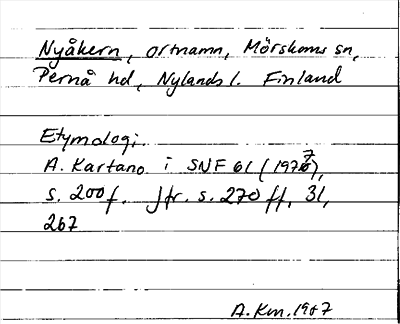 Nyåkern, ortnamn, Mörskoms sn,
Pernå hd, Nylands l. Finland
Etymologi.
A. Kartano i SNF 61 (1977),
s. 200 f. Jfr. s. 270 ff, 31,
267
A.Km.1987